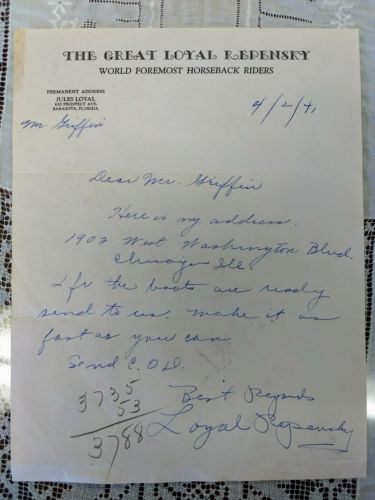 THE GREAT LOYAL REPENSKY
WORLD FOREMOST HORSEBACK RIDERS
PERMANENT ADDRESS
JULES LOYAL
635 PROSPECT AVE.
SARASOTA, FLORIDA
4/2/41
Mr. Griffin
Dear Mr. Griffin
Here is my address.
1902 West Washington Blvd.
Chicago Ill.
If the boots are ready
send to us. make it as
fast as you can
Send C.O.D.
Best Regards
Loyal Repensky
3735
53
3788